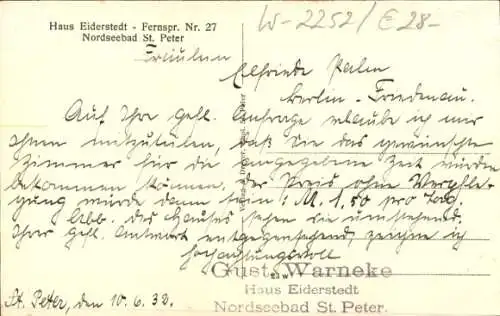 W-2252/E28-
Haus Eiderstedt - Fernspr. Nr. 27
Nordseebad St. Peter
Fräulein
Elfriede Palm
Berlin-Friedenau.
Auf Ihre gefl. Anfrage erlaube ich mir
Ihnen mitzuteilen, daß Sie das gewünschte
Zimmer für die angegebene Zeit würden
bekommen können. Der Preis ohne Verpfle-
gung würde dann sein: M. 1,50 pro Tag.
Abb. des Hauses sehen Sie umstehend.
Ihrer gefl. Antwort entgegensehend, zeichne ich
hochachtungsvoll
Gust. Warneke
Haus Eiderstedt
Nordseebad St. Peter.
St. Peter, den 10.6.32.